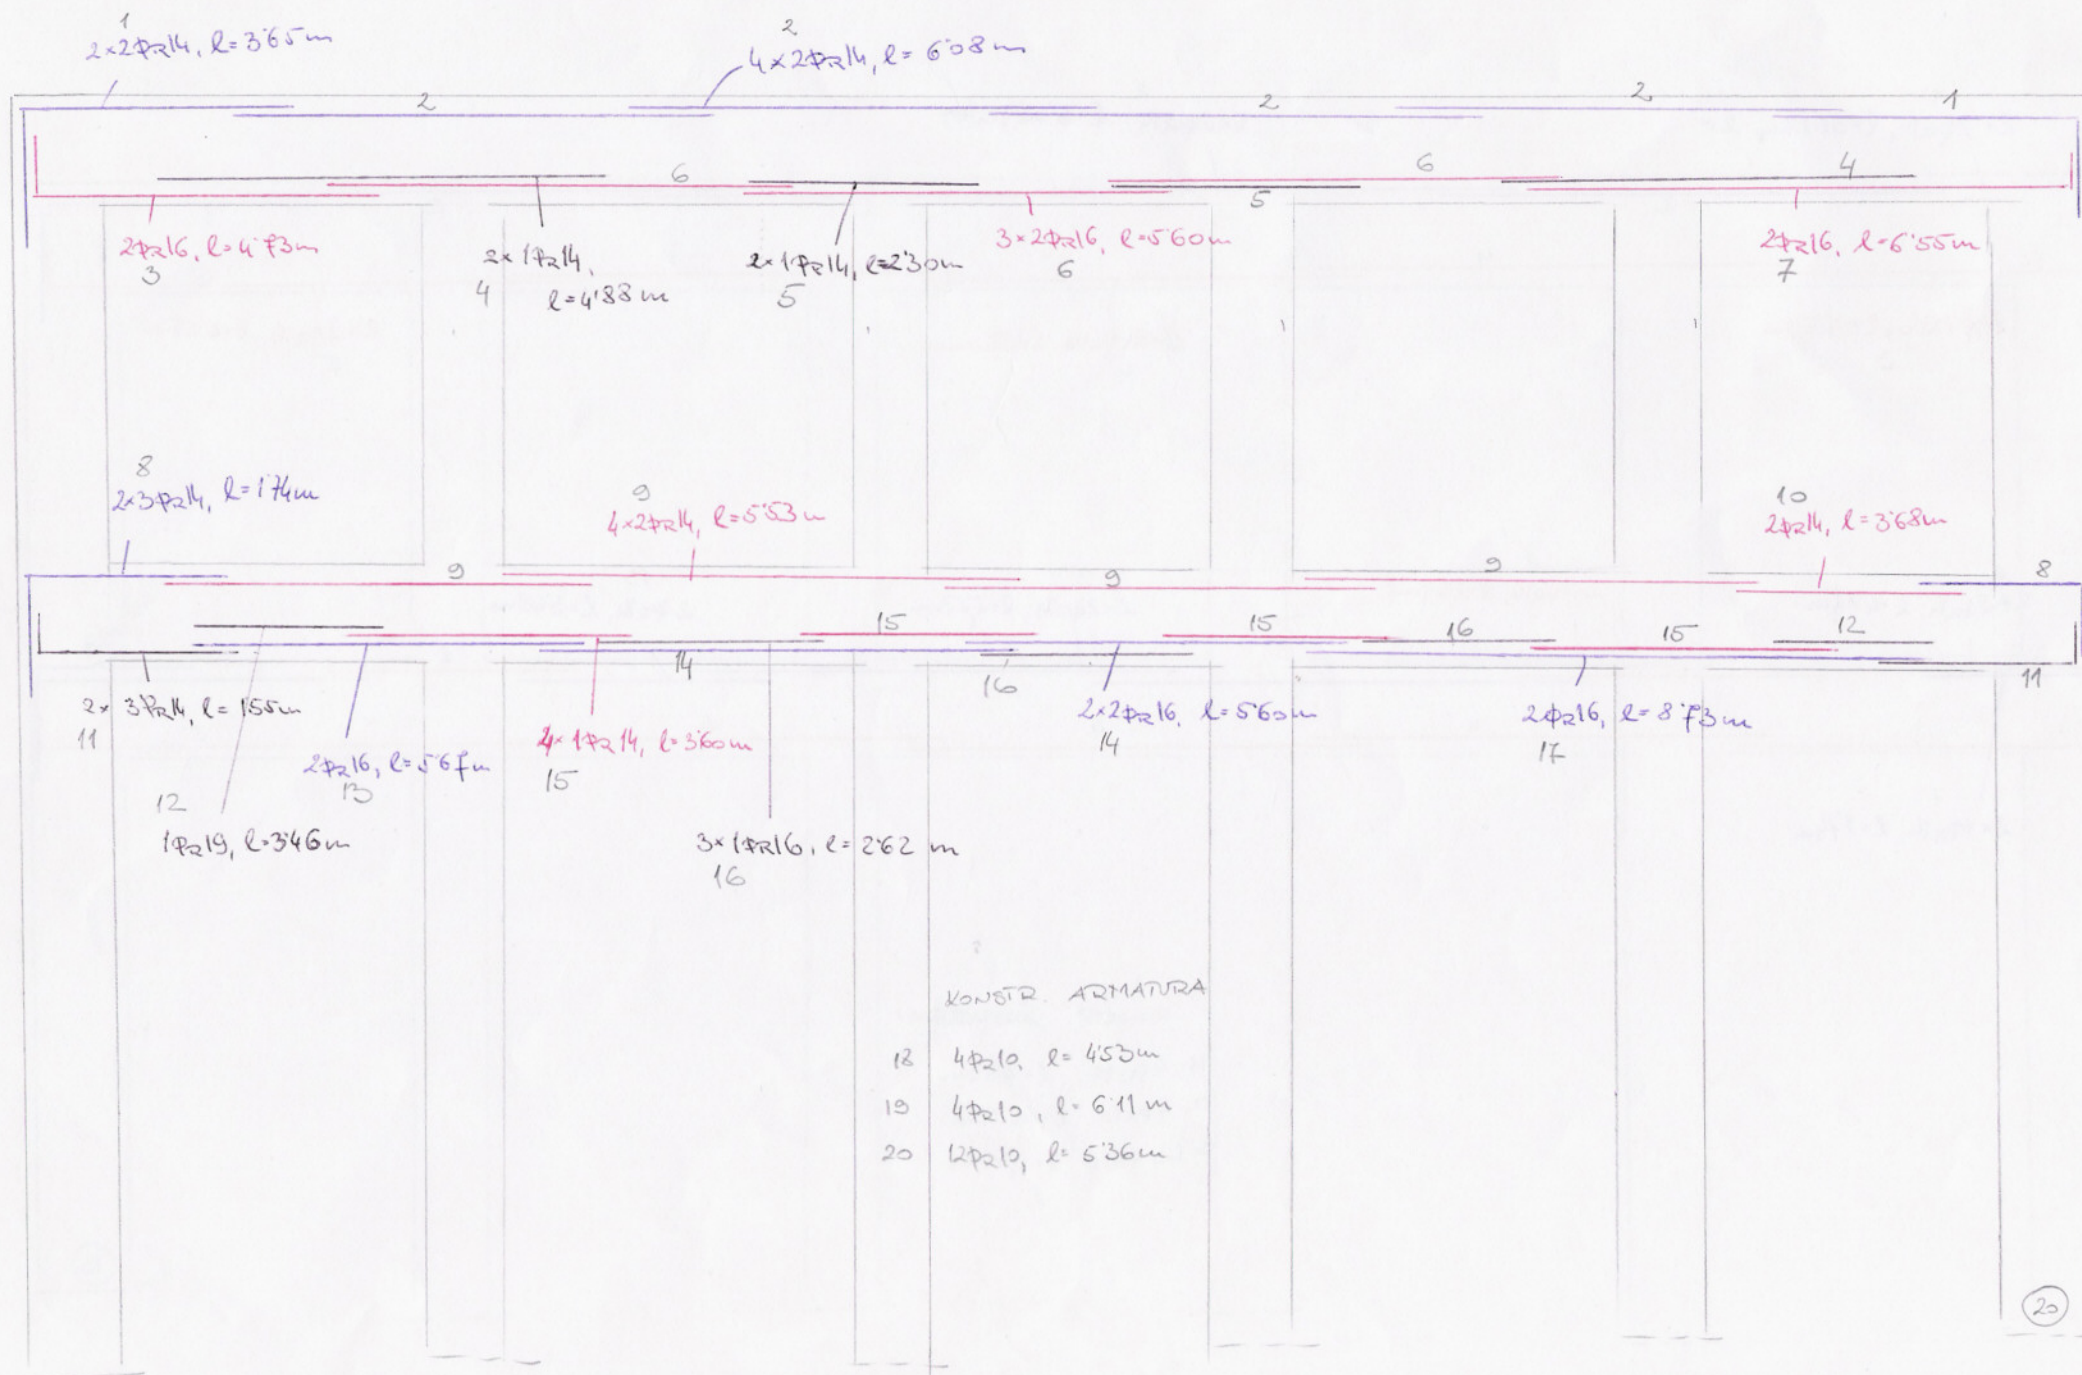 1
2×2ΦR14, l=3'65m
2
4×2ΦR14, l=6'08m
2
2
2
1
6
6
4
5
2ΦR16, l=4'73m
3
2×1ΦR14,
4 l=4'88m
2×1ΦR14, l=2'30m
5
3×2ΦR16, l=5'60m
6
2ΦR16, l=6'55m
7
8
2×3ΦR14, l=1'74m
9
4×2ΦR14, l=5'53m
10
2ΦR14, l=3'68m
9
9
9
8
15
15
16
15
12
14
16
11
2×3ΦR14, l=1'55m
11
2ΦR16, l=5'67m
13
4×1ΦR14, l=3'60m
15
2×2ΦR16, l=5'60m
14
2ΦR16, l=8'73m
17
12
1ΦR19, l=3'46m
3×1ΦR16, l=2'62m
16
KONSTR. ARMATURA
18 4ΦR10, l=4'53m
19 4ΦR10, l=6'11m
20 12ΦR10, l=5'36m
20